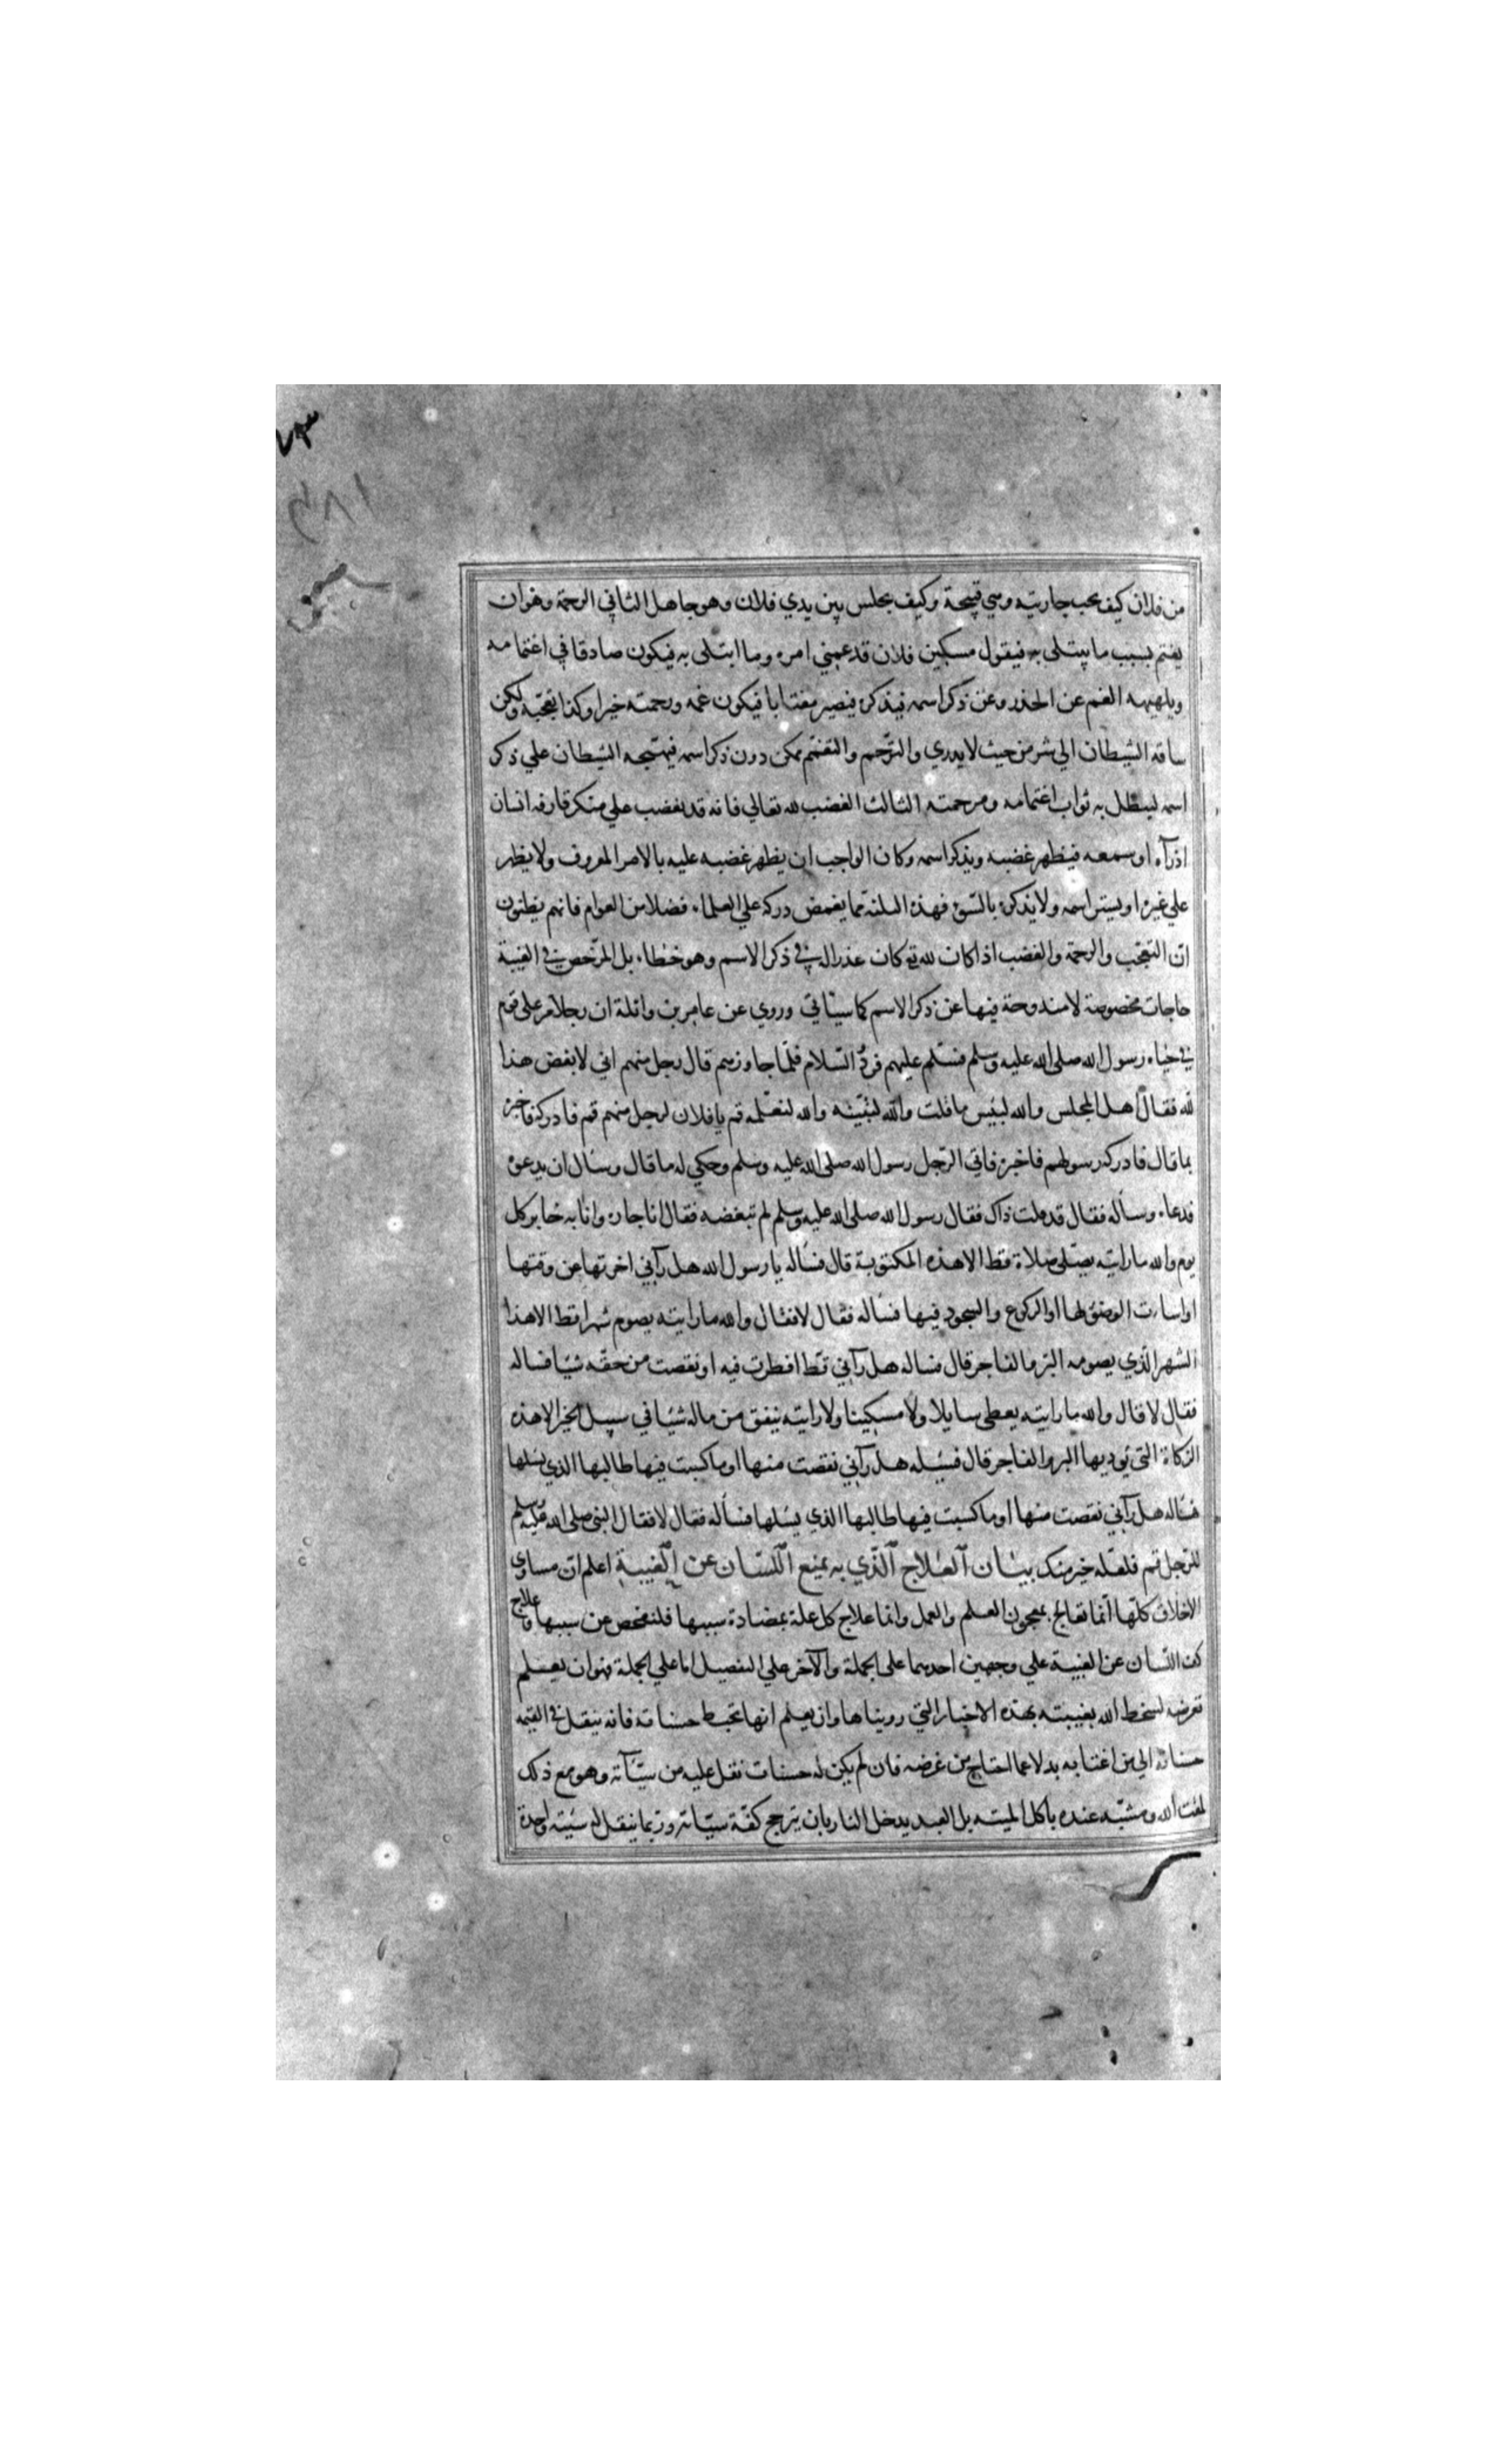 من فلان كيف يحب جاريته وهي قبيحة وكيف يجلس بين يدي فلان وهو جاهل الثاني الرحمة وهوان
يغتم بسبب ما يبتلى به فيقول مسكين فلان قد غمني امره وما ابتلى به فيكون صادقا في اغتمامه
ويلهيه الغم عن الحذر وعن ذكر اسمه فيذكره فيصير مغتابا فيكون غمه ورحمته خيرا وكذا تعجبه ولكن
ساقه الشيطان الي شر من حيث لا يدري والترحم والتغمم ممكن دون ذكر اسمه فيهيجه الشيطان علي ذكر
اسمه ليبطل به ثواب اغتمامه ومرحمته الثالث الغضب لله تعالي فانه قد يغضب علي منكر قارفه انسان
اذ رآه او سمعه فيظهر غضبه ويذكر اسمه وكان الواجب ان يظهر غضبه عليه بالامر المعروف ولا يظهر
علي غيره او يستر اسمه ولا يذكره بالسوء فهذه الثلثة مما يغمض دركه علي العلماء فضلا من العوام فانهم يظنون
ان التعجب والرحمة والغضب اذا كان لله تع كان عذرا له في ذكر الاسم وهو خطاء بل المرخص في الغيبة
حاجات مخصوصة لا مندوحة فيها عن ذكر الاسم كما سياتي وروي عن عامر بن واثلة ان رجلا مر على قوم
في حياه رسول الله صلى الله عليه وسلم فسلم عليهم فرد السلام فلما جاوزهم قال رجل منهم اني لابغض هذا
لله فقال اهل المجلس والله لبئس ما قلت والله لنبئنه والله لنعلمه قم يا فلان لرجل منهم قم فادركه فاخبره
بما قال فادركه رسولهم فاخبره فاتي الرجل رسول الله صلى الله عليه وسلم وحكي له ما قال وسال ان يدعوه
فدعاه وساله فقال قد قلت ذاك فقال رسول الله صلى الله عليه وسلم لم تبغضه فقال انا جاره وانا به خابر كل
يوم والله ما رايته يصلى صلاة قط الا هذه المكتوبة قال فساله يا رسول الله هل رآني اخرتها عن وقتها
او اسات الوضوء لها او الركوع والسجود فيها فساله فقال لا فقال والله ما رايته يصوم شهرا قط الا هذا
الشهر الذي يصومه البر والفاجر قال فساله هل رآني قط افطرت فيه او نقصت من حقه شيئا فساله
فقال لا قال والله ما رايته يعطى سايلا ولا مسكينا ولا رايته ينفق من ماله شيئا في سبيل الخير الا هذه
الزكاة التي يوديها البر والفاجر قال فسئله هل رآني نقصت منها او ماكست فيها طالبها الذي يسلها
فساله هل رآني نقصت منها او ماكست فيها طالبها الذي يسئلها فساله فقال لا فقال النبي صلى الله عليه وسلم
للرجل قم فلعله خير منك بيان العلاج الذي به يمنع اللسان عن الغيبة اعلم ان مساوي
الاخلاق كلها انما تعالج بمعجون العلم والعمل وانما علاج كل علة بمضادة سببها فلنفحص عن سببها وعلاج
كف اللسان عن الغيبة علي وجهين احدهما على الجملة والآخر علي التفصيل اما علي الجملة فهو ان يعلم
تعرضه لسخط الله بغيبته بهذه الاخبار التي رويناها وان يعلم انها تحبط حسناته فانه ينقل في القيمه
حسناته الي من اغتابه بدلا عما استباح من عرضه فان لم يكن له حسنات نقل عليه من سيئآته وهو مع ذلك
لمقت الله ومشبه عنده باكل الميته بل العبد يدخل النار بان يترجح كفة سيئاته وربما ينقل له سيئة واحدة